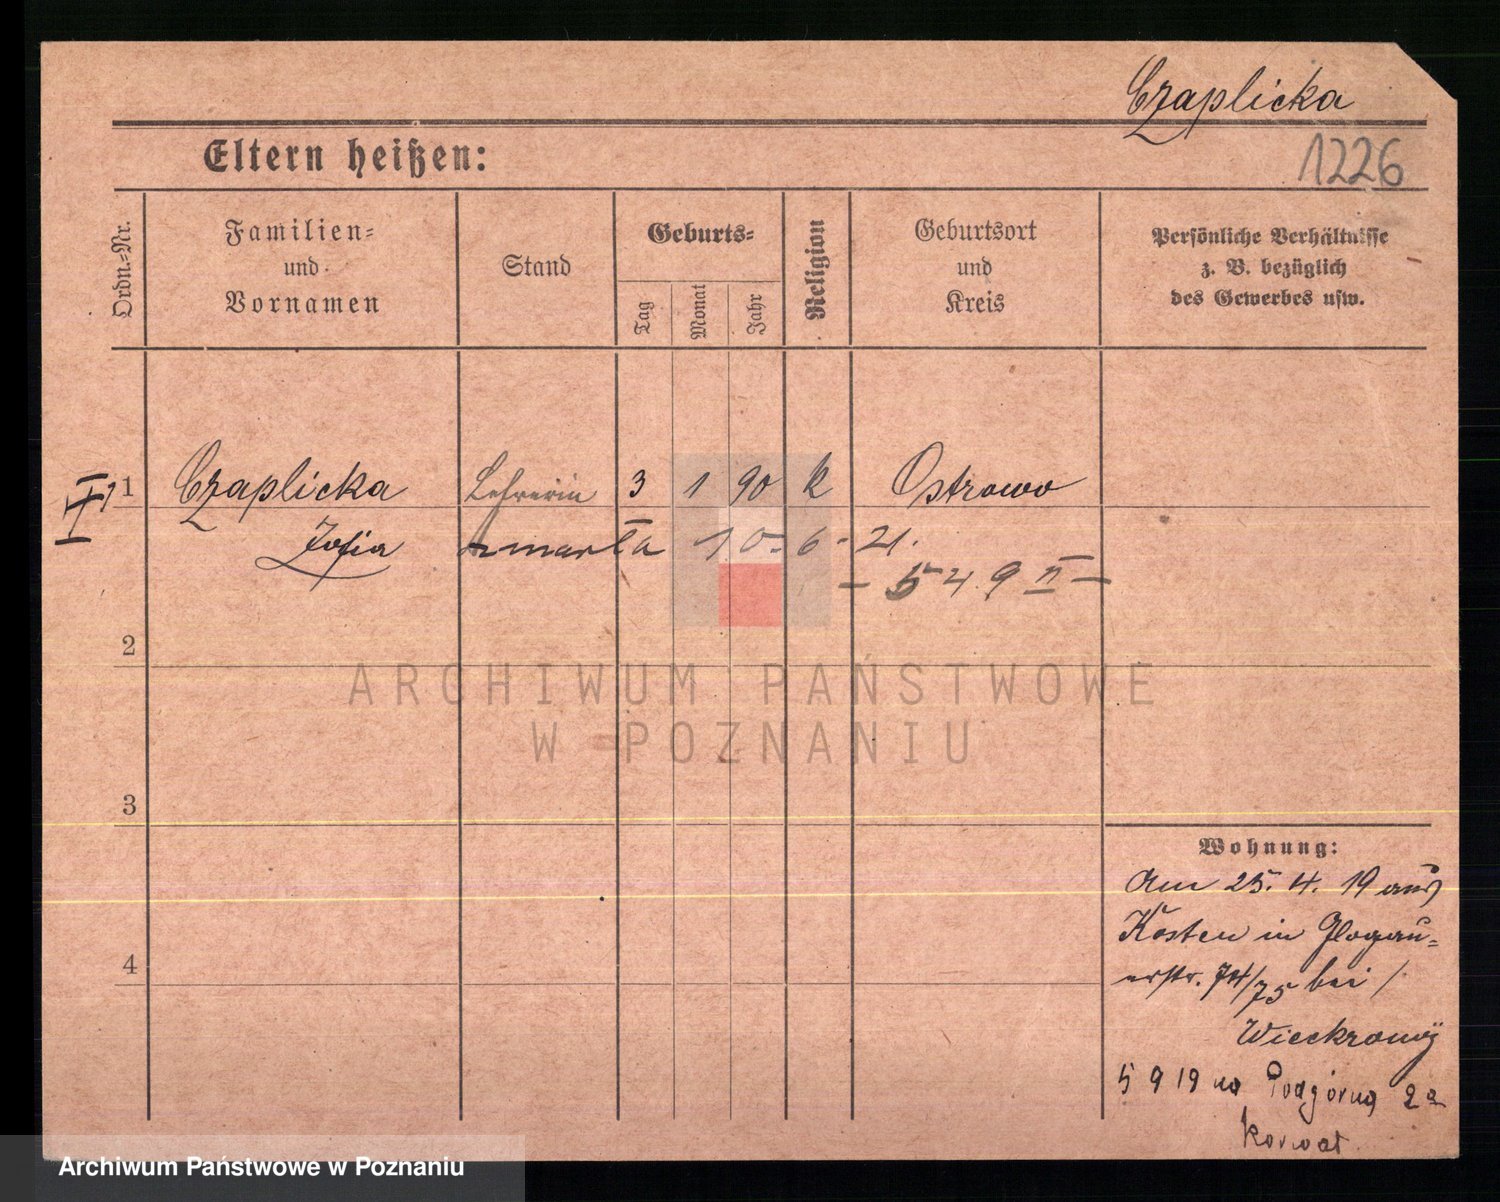 Czaplicka
1226
Eltern heißen:
Ordn.-Nr.
Familien-
und
Vornamen
Stand
Geburts-
Tag
Monat
Jahr
Religion
Geburtsort
und
Kreis
Persönliche Verhältnisse
z. B. bezüglich
des Gewerbes usw.
1 Czaplicka Lehrerin 3 1 90 k Ostrowo
Zofia zmarła 10-6-21.
- 549 II -
2
ARCHIWUM PAŃSTWOWE
W POZNANIU
3
4
Wohnung:
Am 25. 4. 19 aus
Kosten in Glogau-
erstr. 74/75 bei
5 9 19 na Podgórną 2a
Archiwum Państwowe w Poznaniu